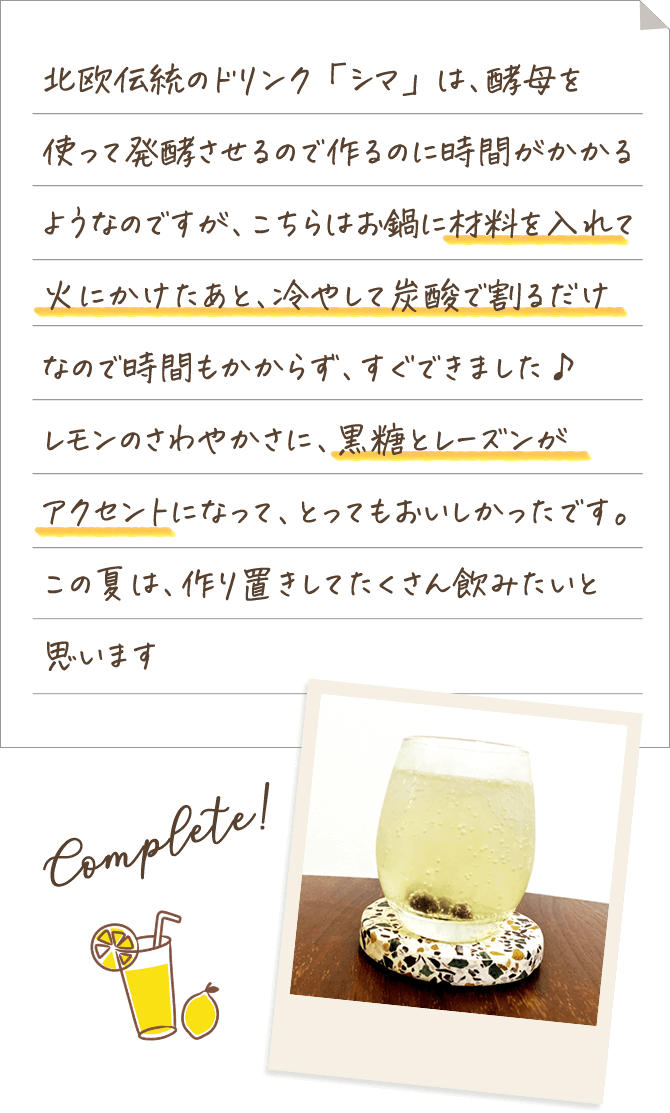 北欧伝統のドリンク「シマ」は、酵母を
使って発酵させるので作るのに時間がかかる
ようなのですが、こちらはお鍋に材料を入れて
火にかけたあと、冷やして炭酸で割るだけ
なので時間もかからず、すぐできました♪
レモンのさわやかさに、黒糖とレーズンが
アクセントになって、とってもおいしかったです。
この夏は、作り置きしてたくさん飲みたいと
思います
Complete!